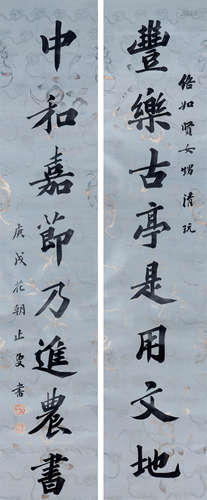 佫如賢女甥清玩
豐樂古亭是用文地
中和嘉節乃進農書
庚戌花朝止叟書